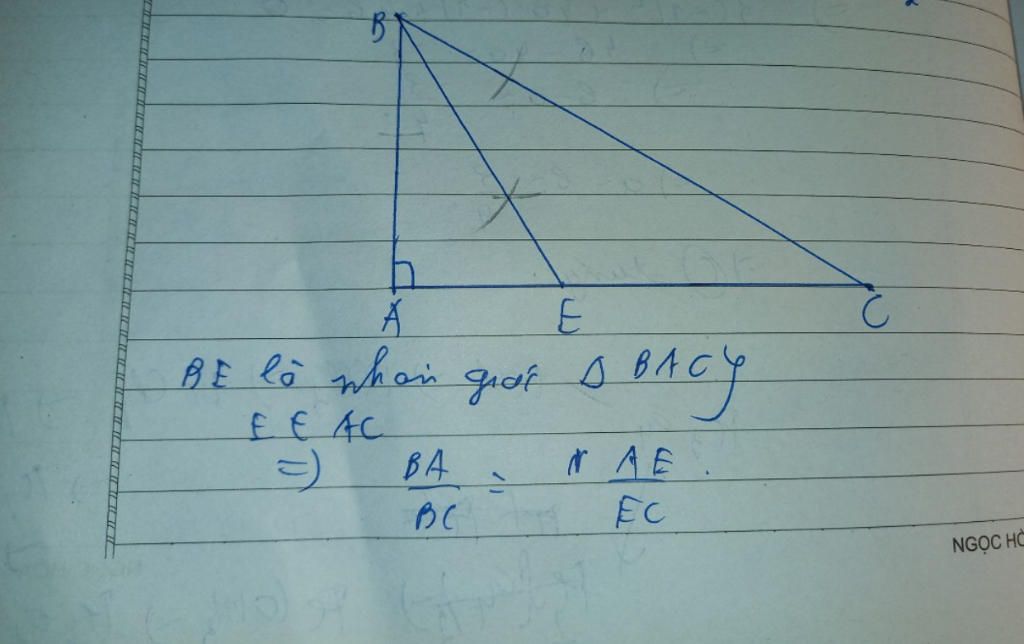 B
A E C
BE là phân giác Δ BAC
E ∈ AC
=) BA/BC = AE/EC .
NGỌC HÒ